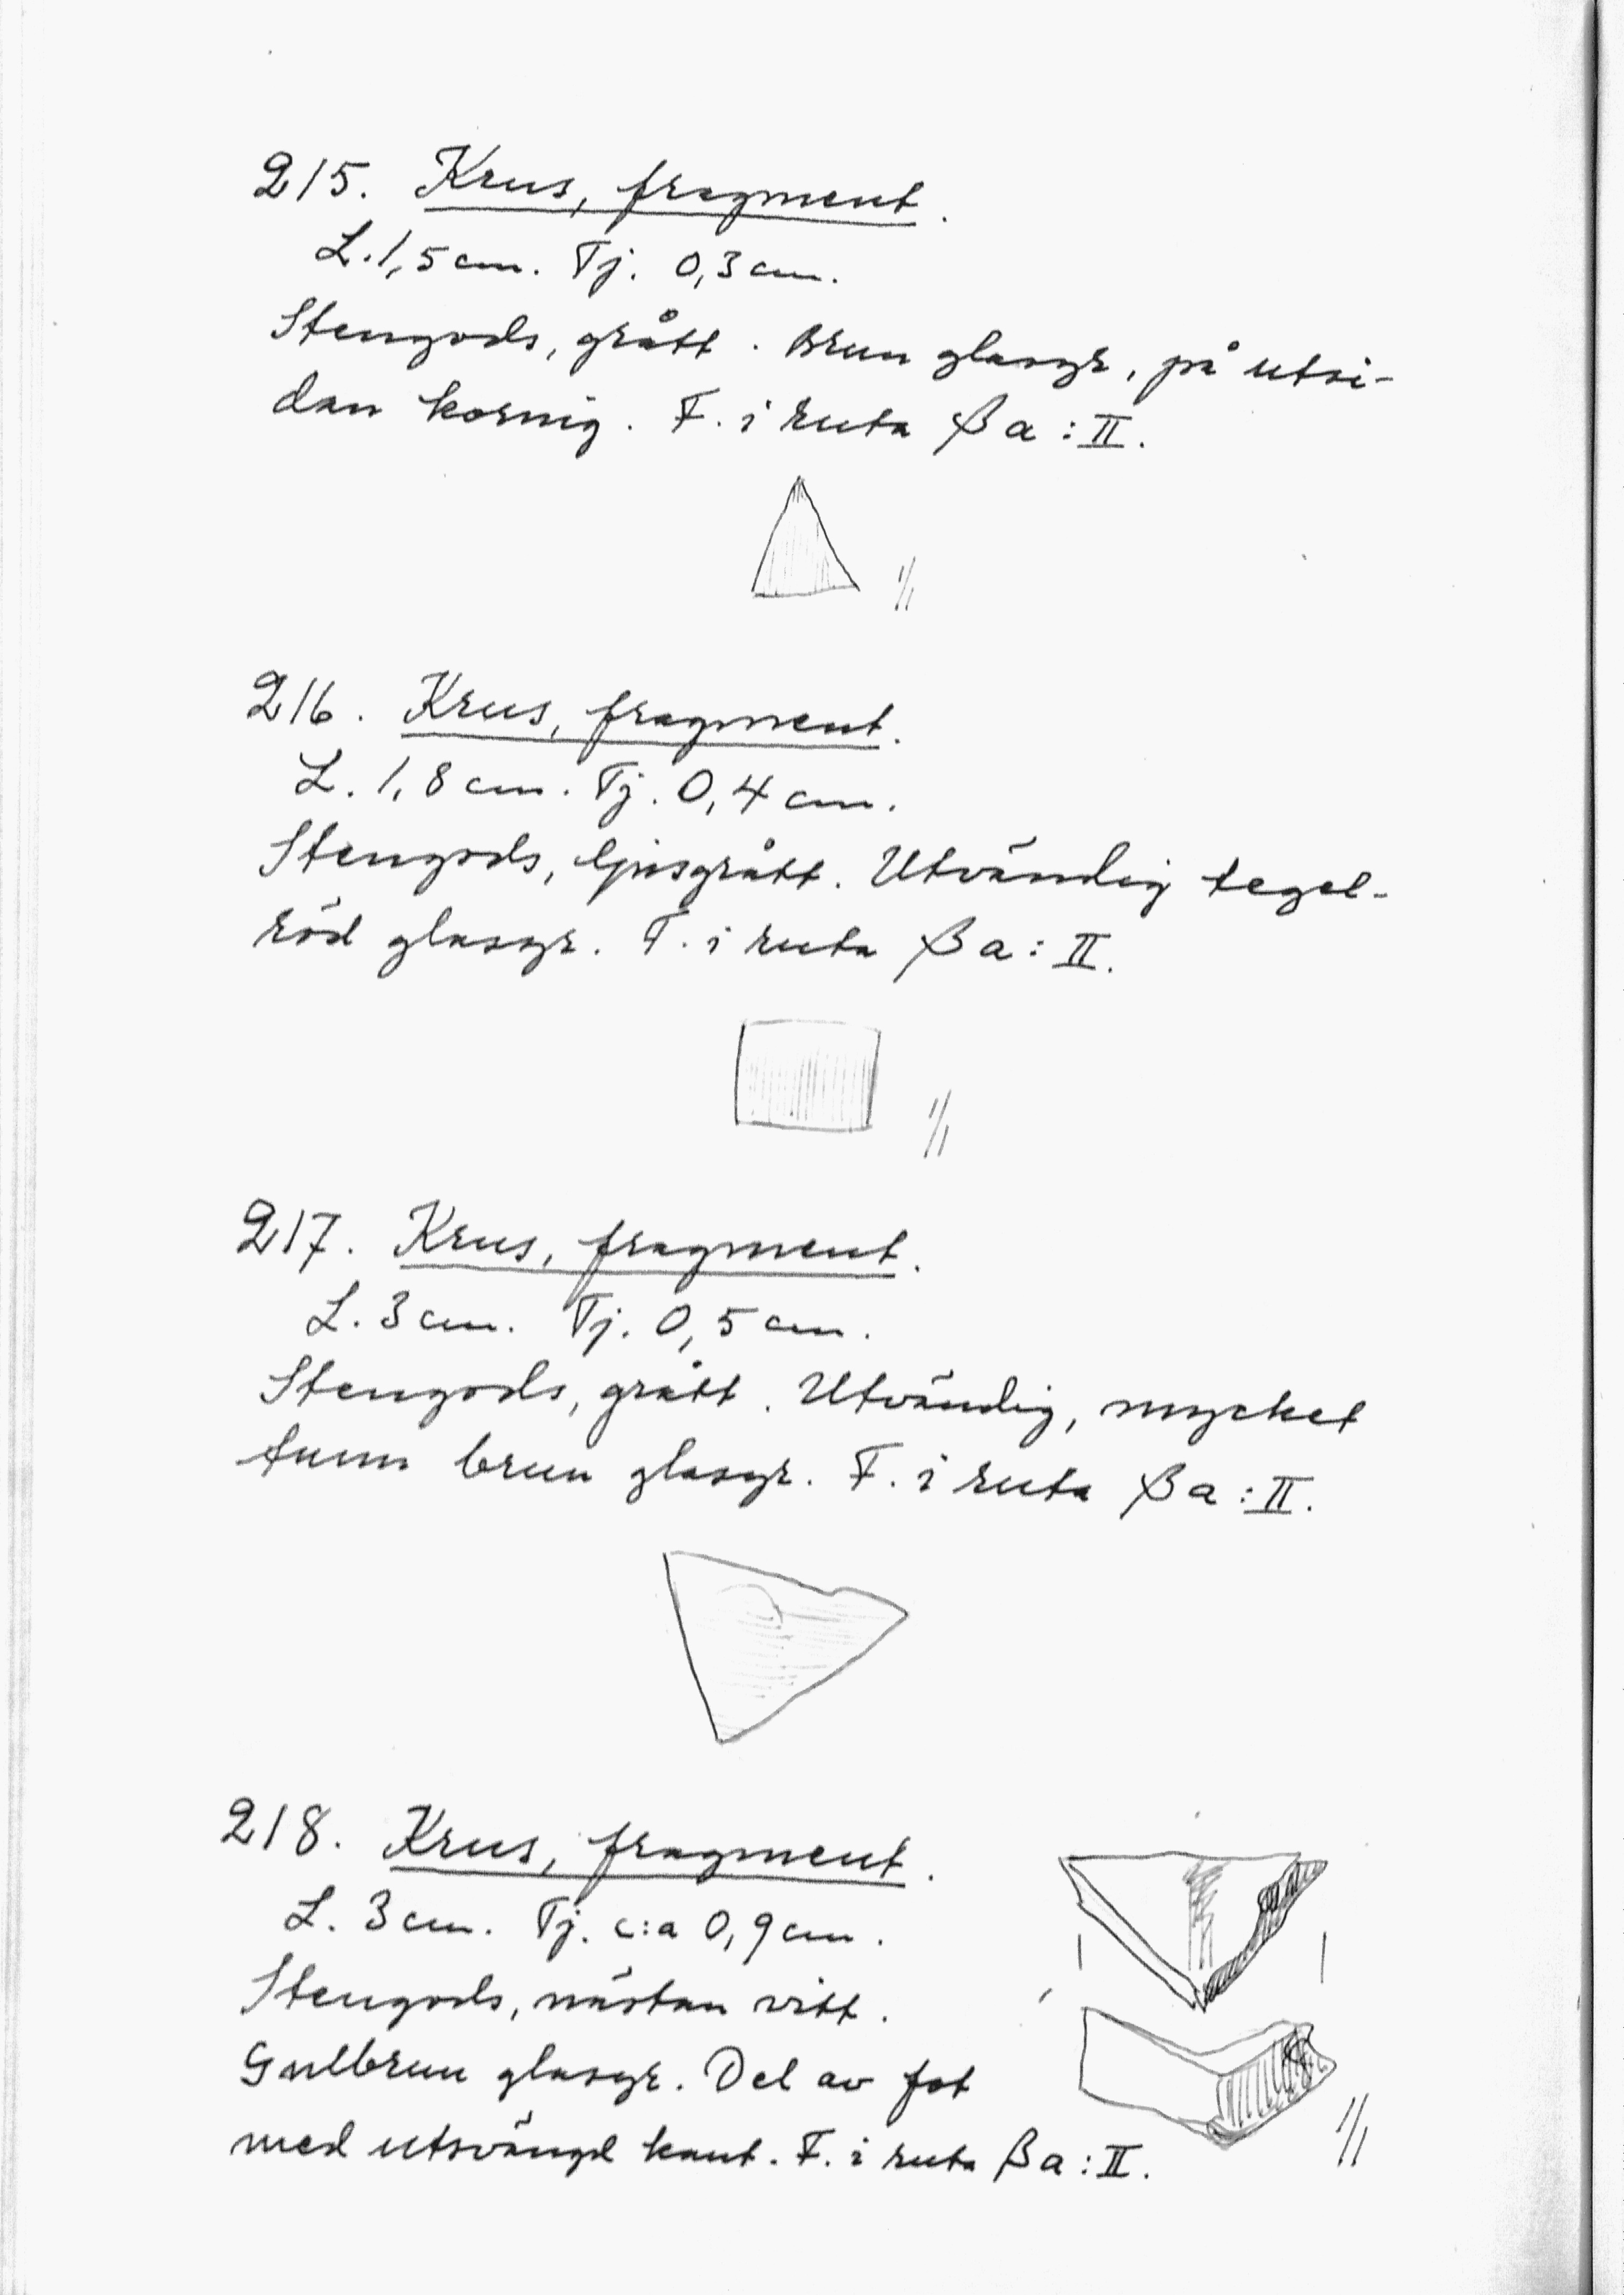 215. Krus, fragment.
L. 1,5 cm. Tj. 0,3 cm.
Stengods, grått. Brun glasyr, på utsi-
dan kornig. F. i ruta βa:II.
1/1
216. Krus, fragment.
L. 1,8 cm. Tj. 0,4 cm.
Stengods, ljusgrått. Utvändig tegel-
röd glasyr. F. i ruta βa:II.
1/1
217. Krus, fragment.
L. 3 cm. Tj. 0,5 cm.
Stengods, grått. Utvändig, mycket
tunn brun glasyr. F. i ruta βa:II.
218. Krus, fragment.
L. 3 cm. Tj. c:a 0,9 cm.
Stengods, nästan vitt.
Gulbrun glasyr. Del av fot
med utsvängd kant. F. i ruta βa:II.
1/1